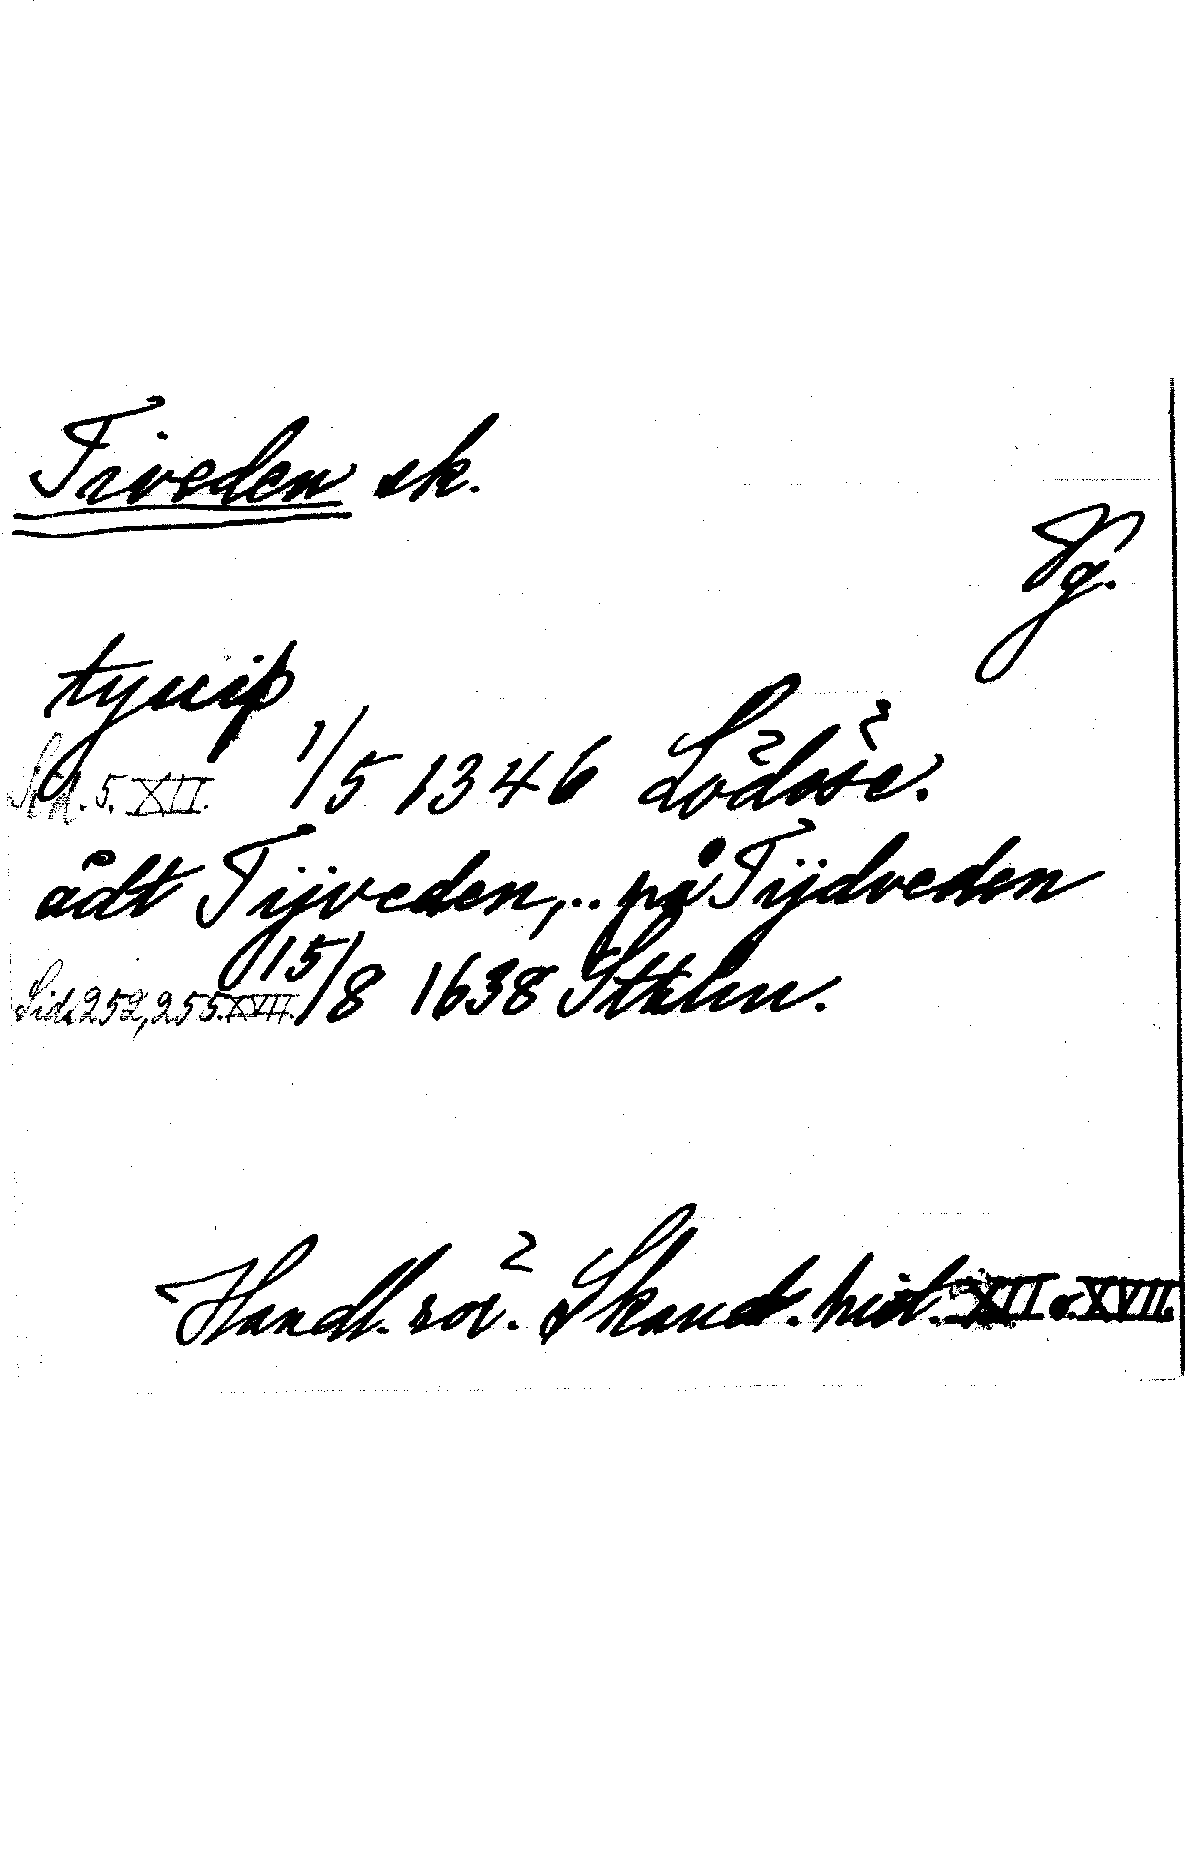 Tiveden sk.
Vg.
tyuiþ
Sid. 5. XII. 1/5 1346 Lödöse.
ådt Tijveden,.. på Tijdveden
Sid. 252, 255. XVII. 15/8 1638 Sthlm.
Handl. rör. Skand. hist. XII o. XVII.